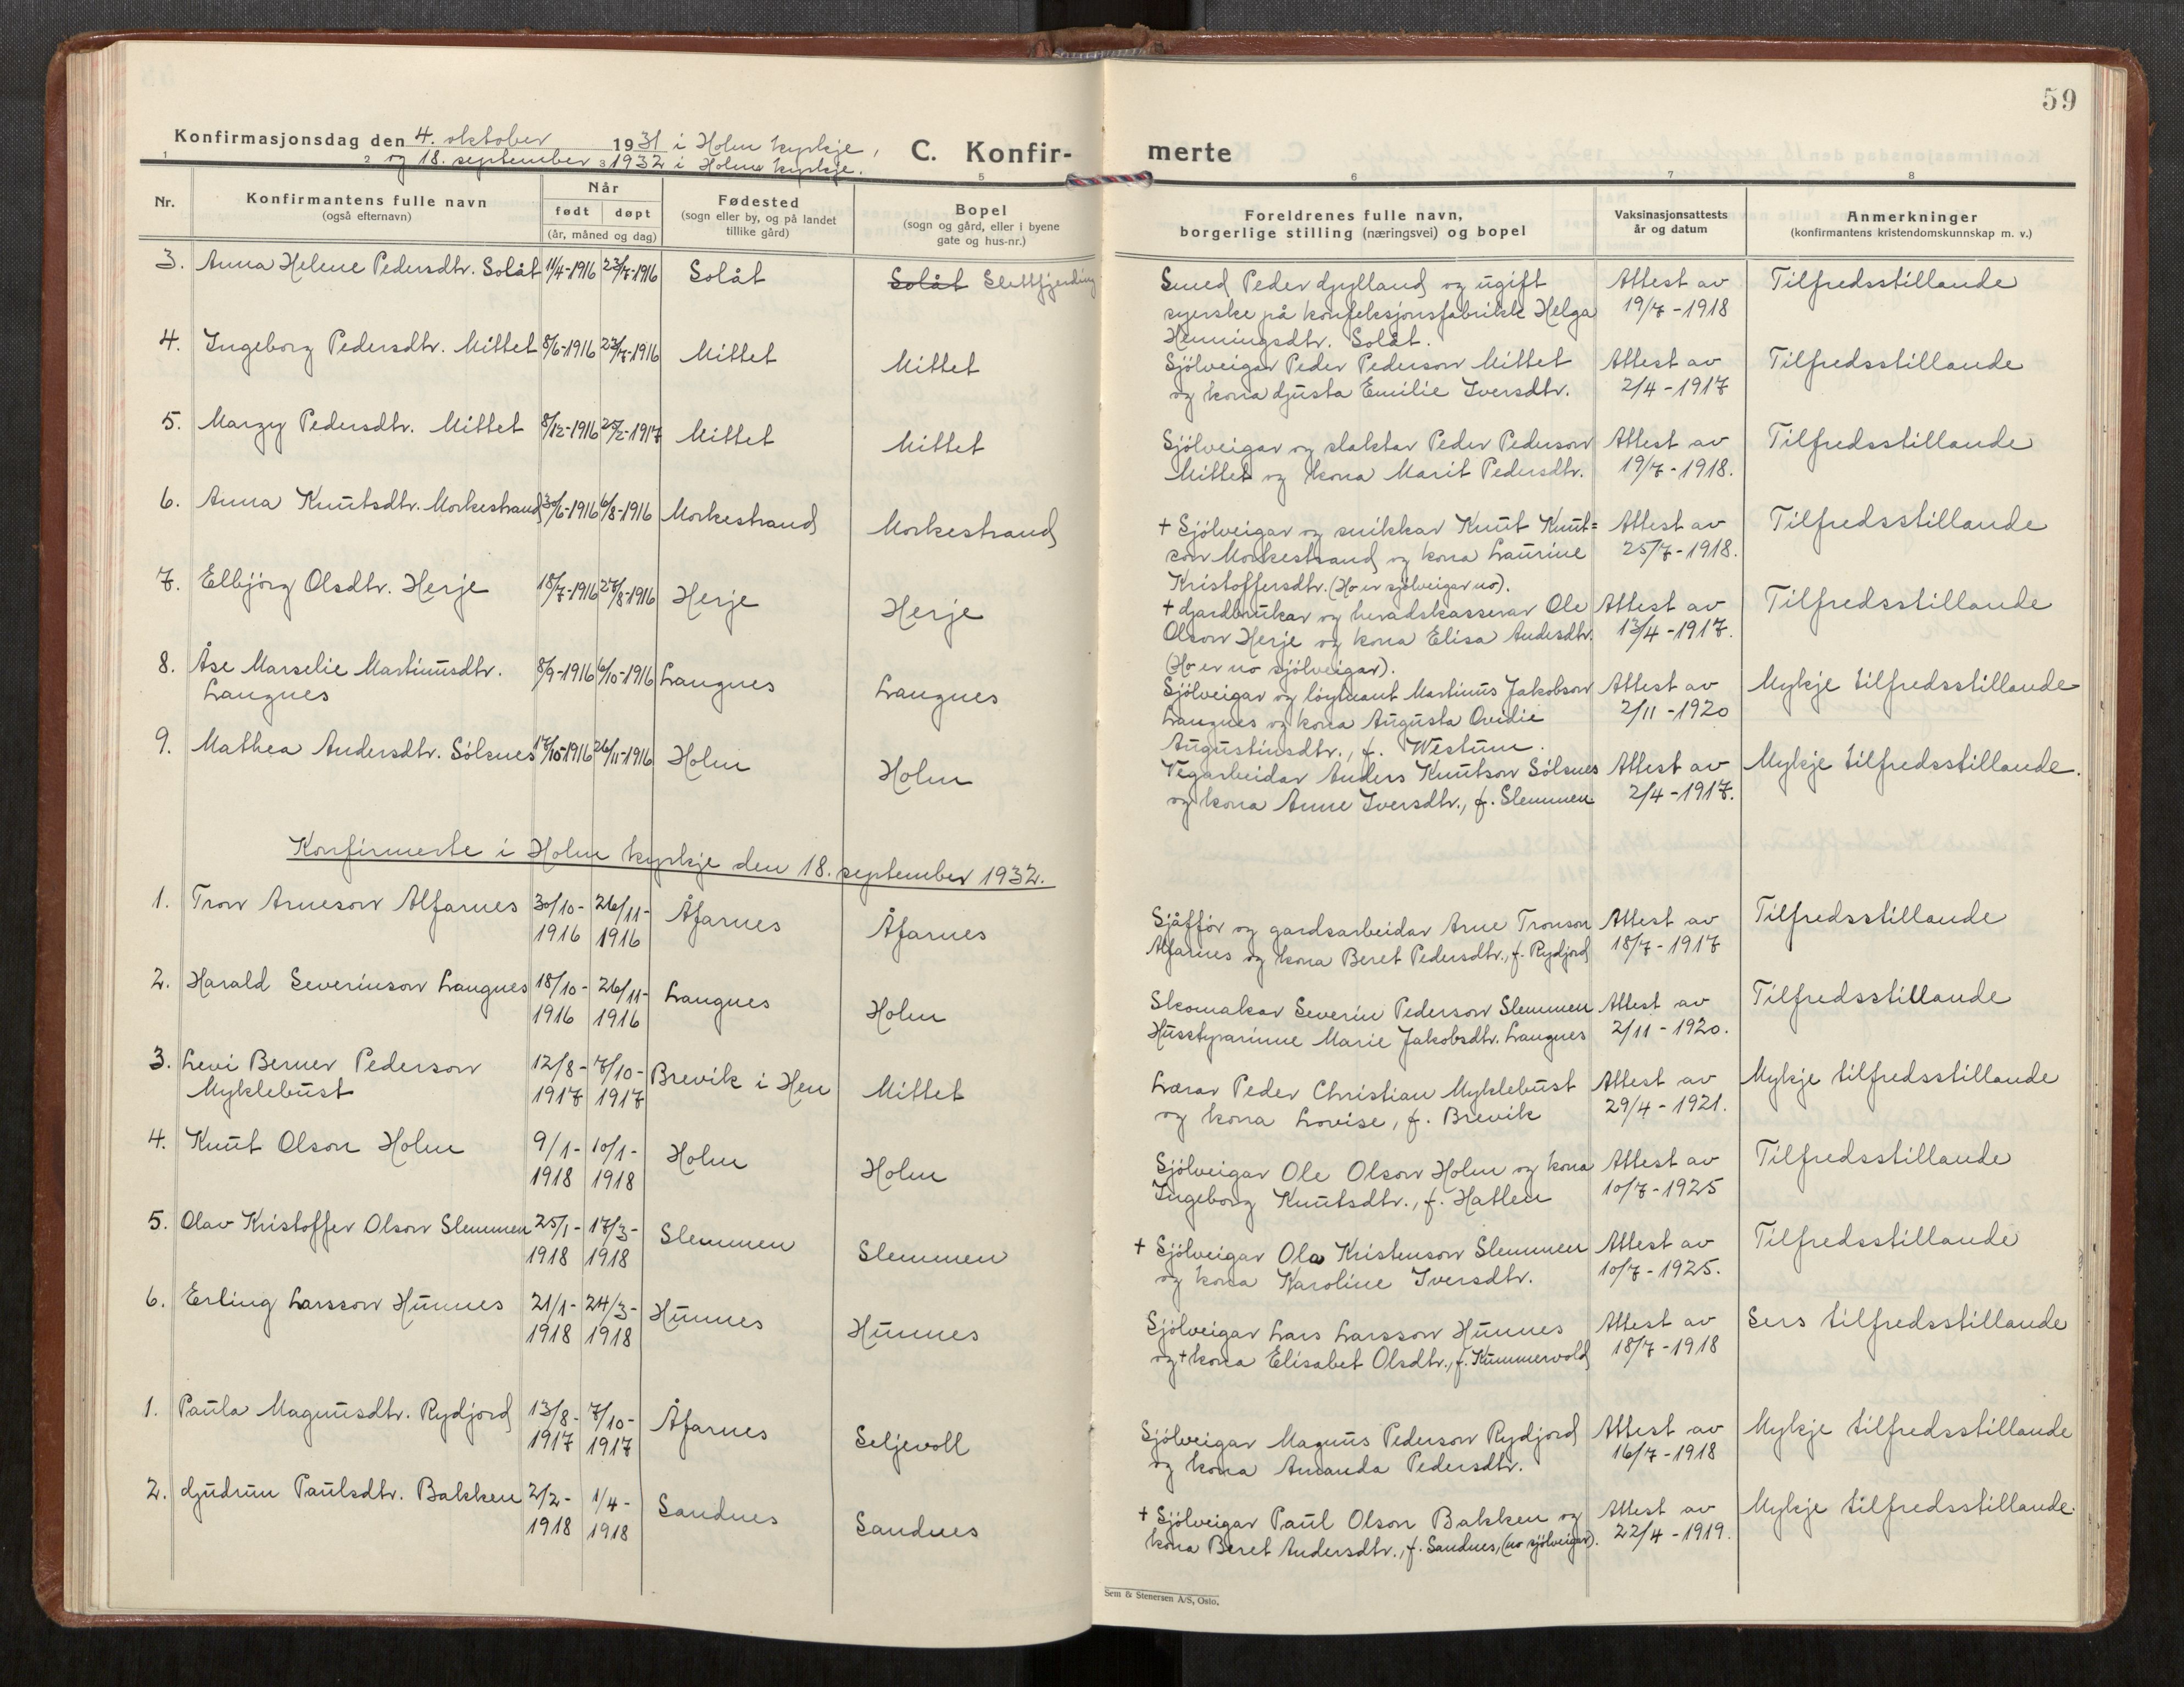 59
Konfirmasjonsdag den 4. oktober 1931 i Holm kyrkje,
og 18. september 1932 i Holm kyrkje.
C. Konfir-
merte
1 2 3 5 6 7 8
Nr.
Konfirmantens fulle navn
(også efternavn)
Når
født døpt
(år, måned og dag)
Fødested
(sogn eller by, og på landet
tillike gård)
Bopel
(sogn og gård, eller i byene
gate og hus-nr.)
Foreldrenes fulle navn,
borgerlige stilling (næringsvei) og bopel
Vaksinasjonsattests
år og datum
Anmerkninger
(konfirmantens kristendomskunnskap m. v.)
3. Anna Helene Pedersdtr. Solåt 11/4-1916 23/7-1916 Solåt Solåt Slettfjerding
Smed Peder Gjylland og ugift
syerske på konfeksjonsfabrikk Helga
Henningsdtr. Solåt.
Attest av
19/7-1918
Tilfredsstillande
4. Ingeborg Pedersdtr. Mittet 8/6-1916 23/7-1916 Mittet Mittet
Sjölveigar Peder Pederson Mittet
og kona Gjusta Emilie Iversdtr.
Attest av
2/4-1917
Tilfredsstillande
5. Margy Pedersdtr. Mittet 8/12-1916 25/2-1917 Mittet Mittet
Sjölveigar og slaktar Peder Pederson
Mittet og kona Marit Pedersdtr.
Attest av
19/7-1918.
Tilfredsstillande
6. Anna Knutsdtr. Morkestrand 30/6-1916 6/8-1916 Morkestrand Morkestrand
+ Sjölveigar og snikkar Knut Knut=
son Morkestrand og kona Laurine
Kristoffersdtr. (Ho er sjölveigar no).
Attest av
25/7-1918.
Tilfredsstillande
7. Elbjörg Olsdtr. Herje 18/7-1916 27/8-1916 Herje Herje
+ Gardbrukar og heradskasserar Ole
Olson Herje og kona Elisa Andersdtr.
(Ho er no sjölveigar).
Attest av
13/4-1917.
Tilfredsstillande
8. Åse Marselie Martinusdtr.
Langnes
8/9-1916 6/10-1916 Langnes Langnes
Sjölveigar og löytnant Martinus Jakobson
Langnes og kona Augusta Ovidie
Augustinsdtr., f. Westum.
Attest av
2/11-1920
Mykje tilfredsstillande
9. Mathea Andersdtr. Sölsnes 17/10-1916 26/11-1916 Holm Holm
Vegarbeidar Anders Knutson Sölsnes
og kona Anne Iversdtr., f. Slemmen
Attest av
2/4-1917.
Mykje tilfredsstillande.
Konfirmerte i Holm kyrkje den 18. september 1932.
1. Tron Arneson Alfarnes 30/10-1916 26/11-1916 Åfarnes Åfarnes
Sjåffør og gardsarbeidar Arne Tronson
Alfarnes og kona Beret Pedersdtr., f. Rydjord
Attest av
18/7-1917
Tilfredsstillande
2. Harald Severinson Langnes 18/10-1916 26/11-1916 Langnes Holm
Skomakar Severin Pederson Slemmen
Husstyrarinne Marie Jakobsdtr. Langnes
Attest av
2/11-1920.
Tilfredsstillande
3. Levi Berner Pederson
Myklebust
12/8-1917 7/10-1917 Brevik i Hen Mittet
Lærar Peder Christian Myklebust
og kona Lovise, f. Brevik
Attest av
29/4-1921.
Mykje tilfredsstillande
4. Knut Olson Holm 9/1-1918 10/1-1918 Holm Holm
Sjölveigar Ole Olson Holm og kona
Ingeborg Knutsdtr., f. Hatlen
Attest av
10/7-1925
Tilfredsstillande
5. Olav Kristoffer Olson Slemmen 25/1-1918 17/3-1918 Slemmen Slemmen
+ Sjölveigar Ola Kristenson Slemmen
og kona Karoline Iversdtr.
Attest av
10/7-1925.
Tilfredsstillande
6. Erling Larsson Hunnes 21/1-1918 24/3-1918 Hunnes Hunnes
Sjölveigar Lars Larsson Hunnes
og + kona Elisabet Olsdtr., f. Kummervold
Attest av
18/7-1918
Sers tilfredsstillande
1. Paula Magnusdtr. Rydjord 13/8-1917 7/10-1917 Åfarnes Seljevoll
Sjölveigar Magnus Pederson Rydjord
og kona Amanda Pedersdtr.
Attest av
16/7-1918
Mykje tilfredsstillande
2. Gjudrun Paulsdtr. Bakken 2/2-1918 1/4-1918 Sandnes Sandnes
+ Sjölveigar Paul Olson Bakken og
kona Beret Andersdtr., f. Sandnes, (no sjölveigar).
Attest av
22/4-1919.
Mykje tilfredsstillande.
Sem & Stenersen A/S, Oslo.